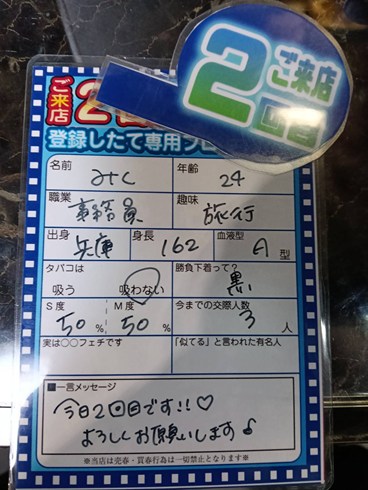 ご来店
2回目
ご来店
登録したて専用プロ
名前
年齢 24
職業 事務員
趣味 旅行
出身 兵庫
身長 162
血液型 A型
タバコは
吸う 吸わない
勝負下着って? 黒
S度 50%
M度 50%
今までの交際人数
3人
実は○○フェチです
「似てる」と言われた有名人
■一言メッセージ
今日2回目です!!♡
よろしくお願いします♪
※当店は売春・買春行為は一切禁止となります※